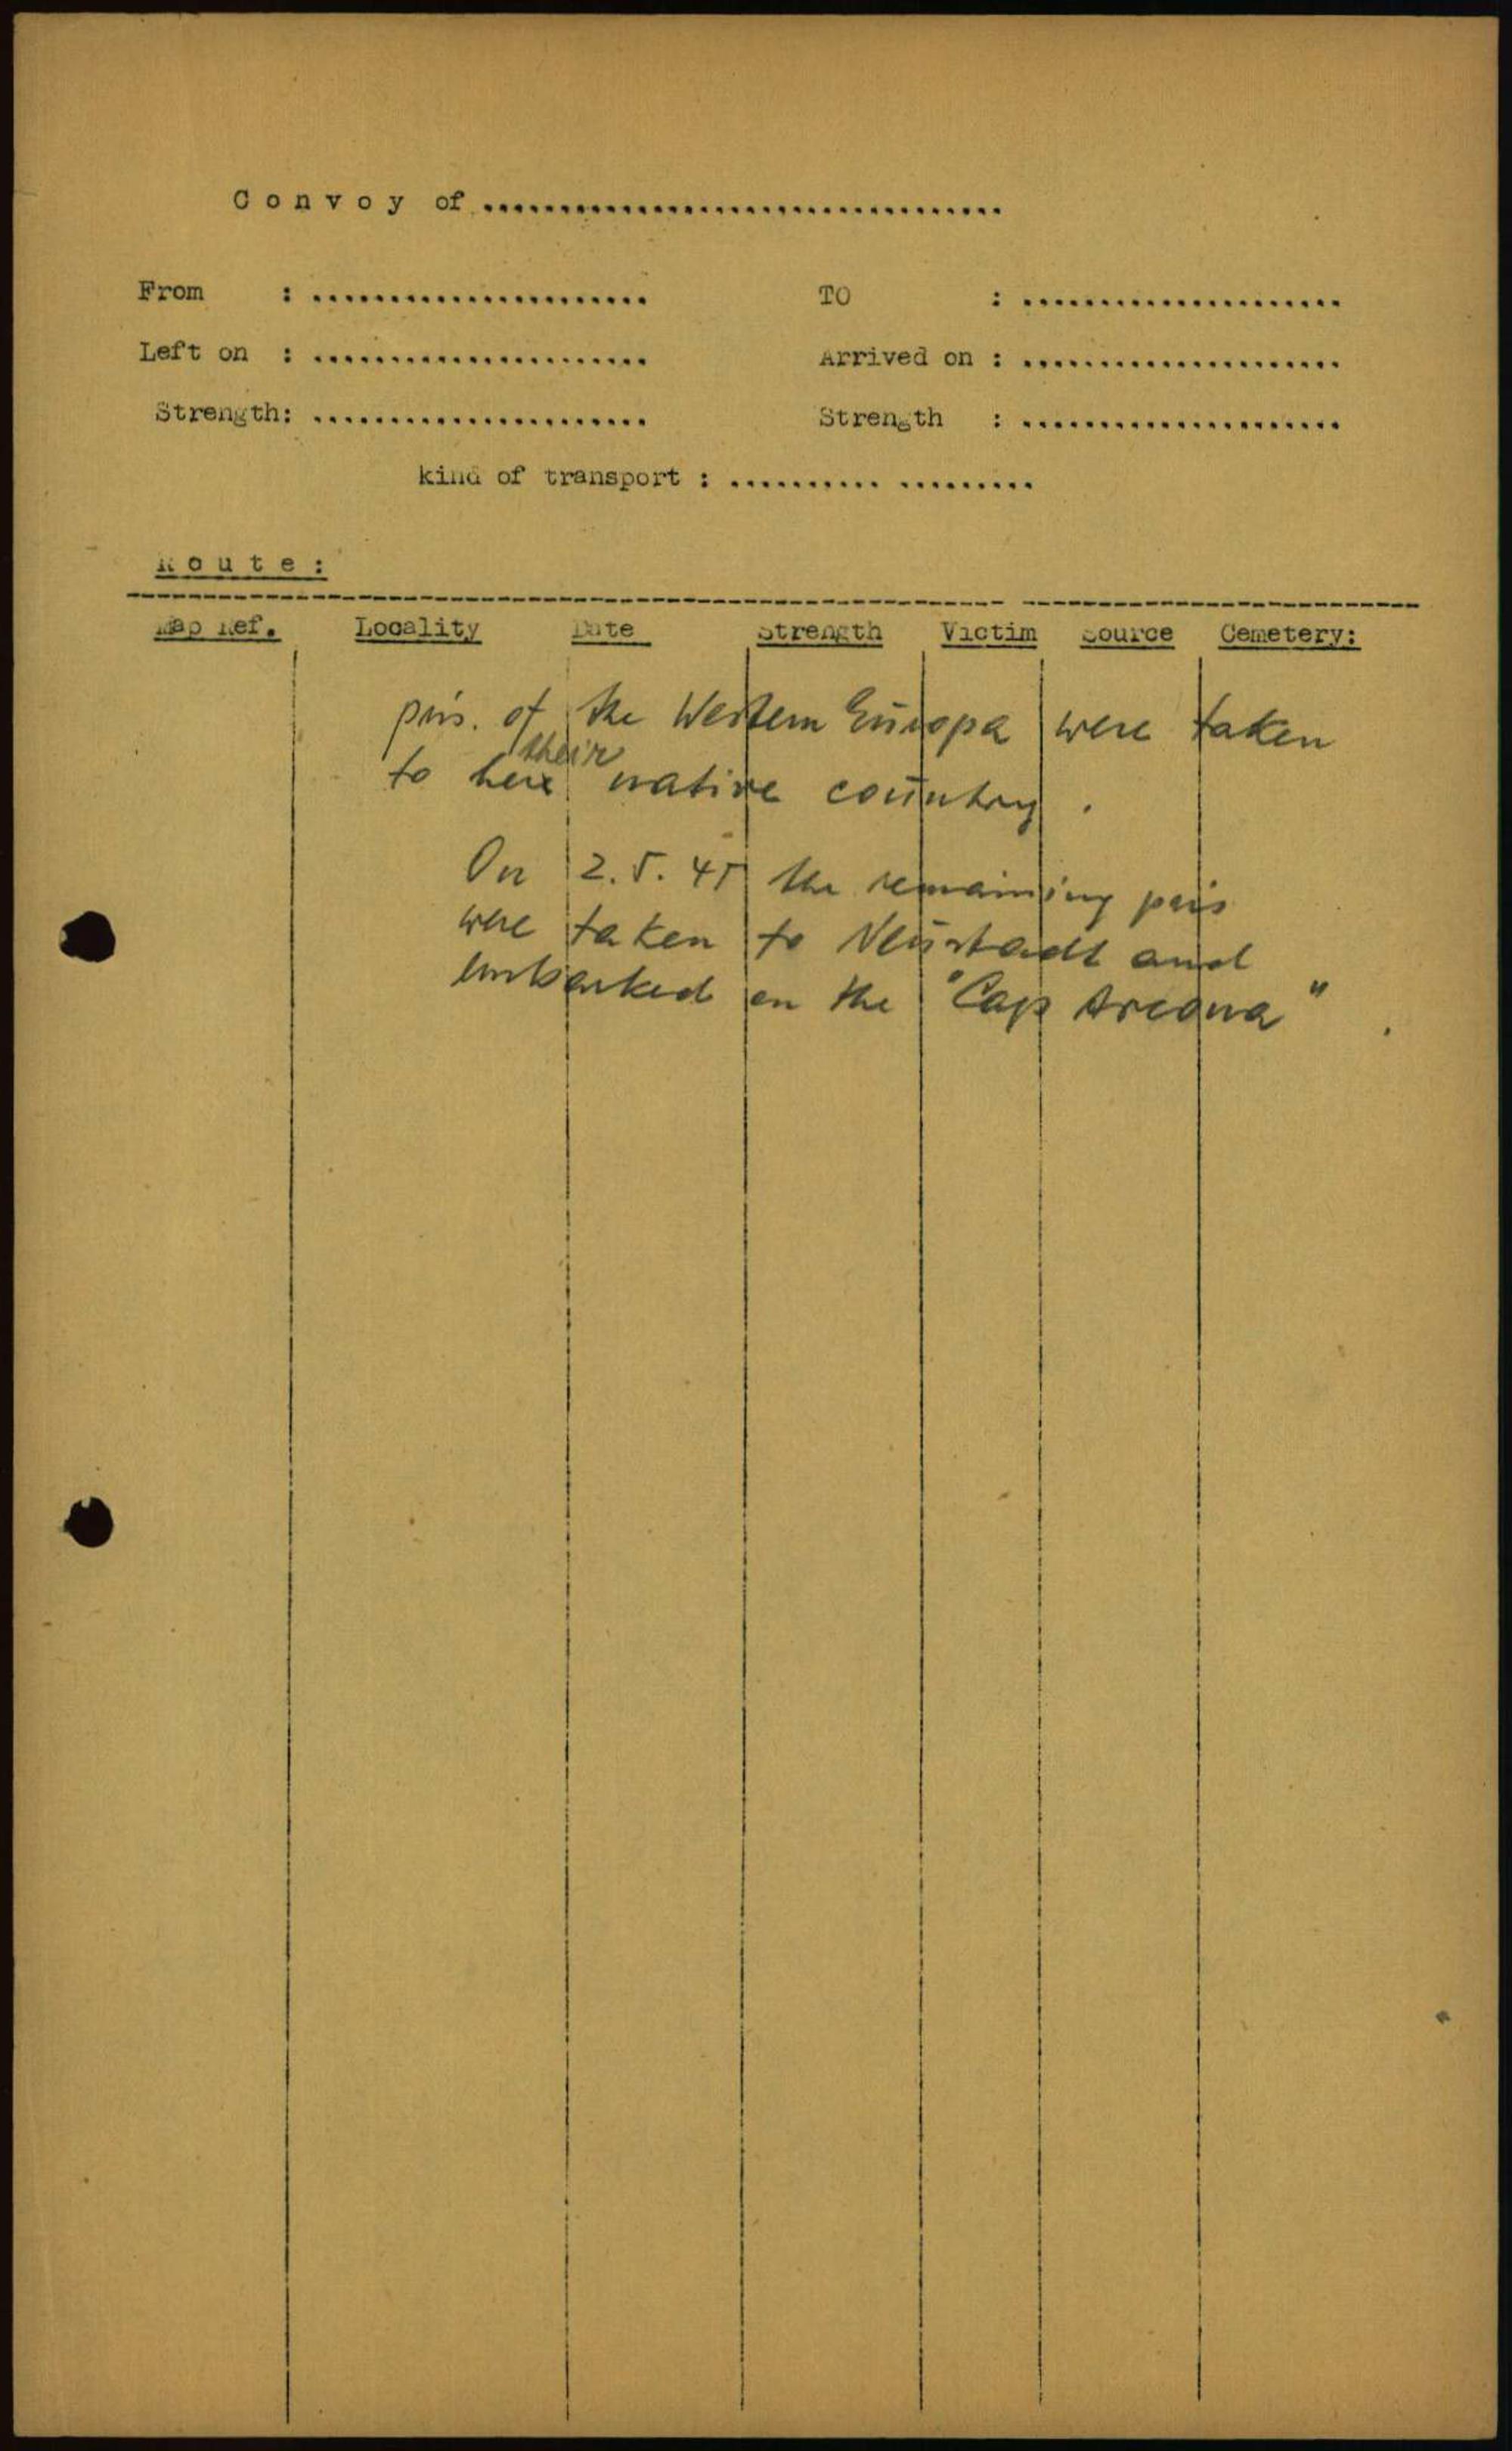 Convoy of ..................................
From : ...................... TO : .....................
Left on : ...................... Arrived on : .....................
Strength: ...................... Strength : .....................
kind of transport : .......... .........
Route:
Map Ref. Locality Date Strength Victim Source Cemetery:
pris. of the Western Europa were taken
their
to here native country .
On 2.5.45 the remaining pris
were taken to Neustadt and
embarked on the "Cap Arcona" .